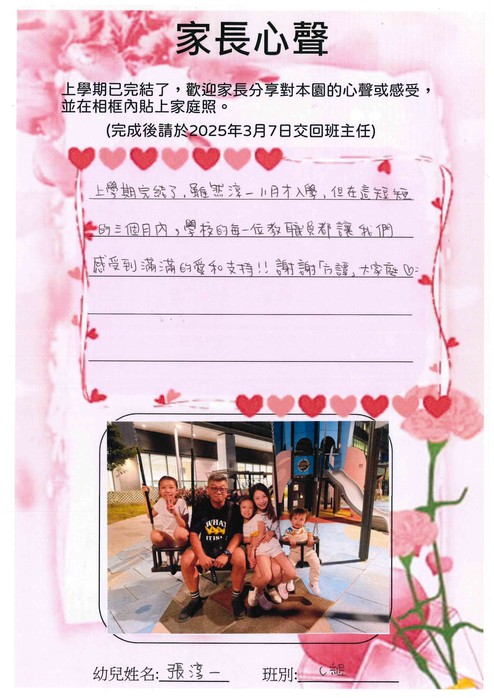 家長心聲
上學期已完結了，歡迎家長分享對本園的心聲或感受，
並在相框內貼上家庭照。
(完成後請於2025年3月7日交回班主任)
上學期完結了，雖然淳一11月才入學，但在這短短
的三個月內，學校的每一位教職員都讓我們
感受到滿滿的愛和支持!! 謝謝「方譚」大家庭♡
WHAT
IT IS
幼兒姓名: 張淳一
班別: C組